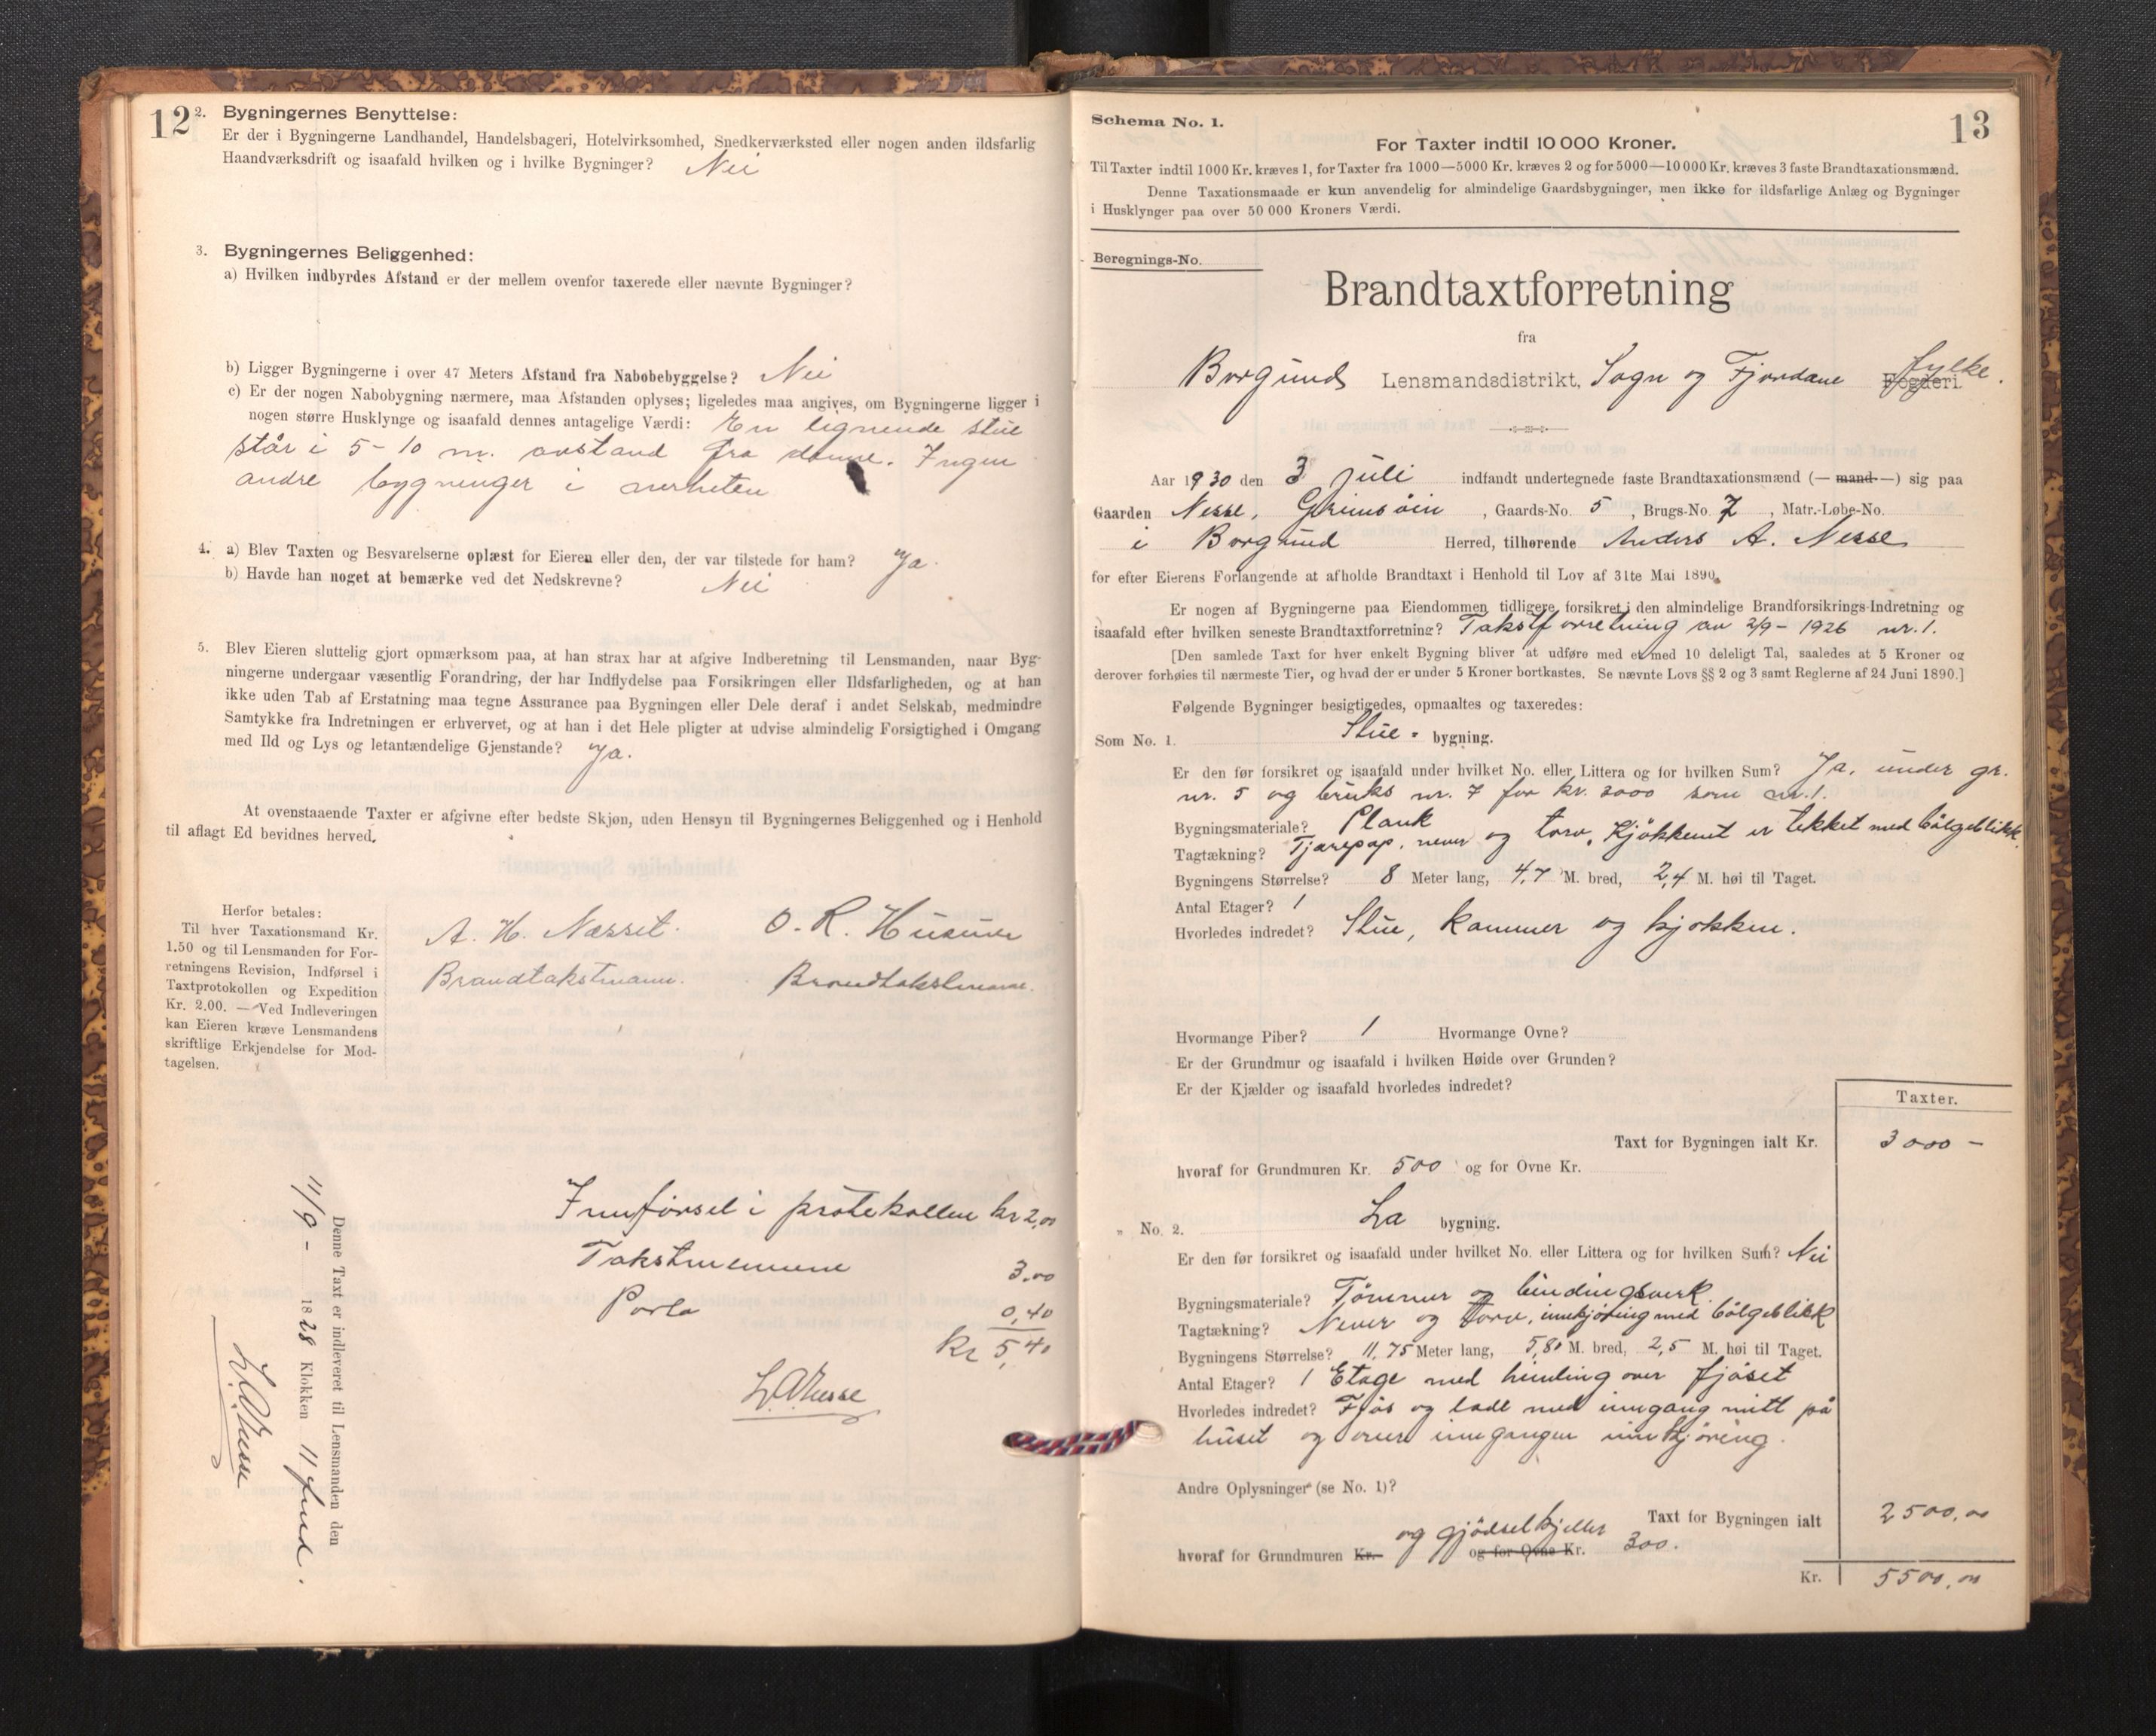 12
2. Bygningernes Benyttelse:
Er der i Bygningerne Landhandel, Handelsbageri, Hotelvirksomhed, Snedkerværksted eller nogen anden ildsfarlig
Haandværksdrift og isaafald hvilken og i hvilke Bygninger? Nei
3. Bygningernes Beliggenhed:
a) Hvilken indbyrdes Afstand er der mellem ovenfor taxerede eller nævnte Bygninger?
b) Ligger Bygningerne i over 47 Meters Afstand fra Nabobebyggelse? Nei
c) Er der nogen Nabobygning nærmere, maa Afstanden oplyses; ligeledes maa angives, om Bygningerne ligger i
nogen større Husklynge og isaafald dennes antagelige Værdi: En lignende stue
står i 5-10 m. avstand fra denne. Ingen
andre bygninger i nerheten
4. a) Blev Taxten og Besvarelserne oplæst for Eieren eller den, der var tilstede for ham? Ja.
b) Havde han noget at bemærke ved det Nedskrevne? Nei
5. Blev Eieren sluttelig gjort opmærksom paa, at han strax har at afgive Indberetning til Lensmanden, naar Byg-
ningerne undergaar væsentlig Forandring, der har Indflydelse paa Forsikringen eller Ildsfarligheden, og at han
ikke uden Tab af Erstatning maa tegne Assurance paa Bygningen eller Dele deraf i andet Selskab, medmindre
Samtykke fra Indretningen er erhvervet, og at han i det Hele pligter at udvise almindelig Forsigtighed i Omgang
med Ild og Lys og letantændelige Gjenstande? Ja.
At ovenstaaende Taxter er afgivne efter bedste Skjøn, uden Hensyn til Bygningernes Beliggenhed og i Henhold
til aflagt Ed bevidnes herved.
Herfor betales:
Til hver Taxationsmand Kr.
1.50 og til Lensmanden for For-
retningens Revision, Indførsel i
Taxtprotokollen og Expedition
Kr. 2.00. — Ved Indleveringen
kan Eieren kræve Lensmandens
skriftlige Erkjendelse for Mod-
tagelsen.
A. H. Næsset. O. R. Husum
Brandtakstmann. Brandtakstmann.
Innførsel i protokollen kr 2,00
Takstmennene 3.00
Porto 0,40
Kr 5,40
L. A. Nesse
Denne Taxt er indleveret til Lensmanden den
11/9 - 1828 Klokken 11 fmd.
L. A. Nesse
13
Schema No. 1.
For Taxter indtil 10 000 Kroner.
Til Taxter indtil 1000 Kr. kræves 1, for Taxter fra 1000—5000 Kr. kræves 2 og for 5000—10 000 Kr. kræves 3 faste Brandtaxationsmænd.
Denne Taxationsmaade er kun anvendelig for almindelige Gaardsbygninger, men ikke for ildsfarlige Anlæg og Bygninger
i Husklynger paa over 50 000 Kroners Værdi.
Beregnings-No.
Brandtaxtforretning
fra
Borgunds Lensmandsdistrikt, Sogn og Fjordane Fogderi fylke.
Aar 1930 den 3 juli indfandt undertegnede faste Brandtaxationsmænd (— mand —) sig paa
Gaarden Nesse, Grimsøin, Gaards-No. 5, Brugs-No. 7, Matr.-Løbe-No.
i Borgund Herred, tilhørende Anders A. Nesse
for efter Eierens Forlangende at afholde Brandtaxt i Henhold til Lov af 31te Mai 1890.
Er nogen af Bygningerne paa Eiendommen tidligere forsikret i den almindelige Brandforsikrings-Indretning og
isaafald efter hvilken seneste Brandtaxtforretning? Takstforretning av 2/9 - 1926 nr. 1.
[Den samlede Taxt for hver enkelt Bygning bliver at udføre med et med 10 deleligt Tal, saaledes at 5 Kroner og
derover forhøies til nærmeste Tier, og hvad der er under 5 Kroner bortkastes. Se nævnte Lovs §§ 2 og 3 samt Reglerne af 24 Juni 1890.]
Følgende Bygninger besigtigedes, opmaaltes og taxeredes:
Som No. 1. Stue- bygning.
Er den før forsikret og isaafald under hvilket No. eller Littera og for hvilken Sum? Ja, under gr.
nr. 5 og bruks nr. 7 for kr. 3000 som nr. 1.
Bygningsmateriale? Plank
Tagtækning? Tjærepap, never og torv. Kjøkkenet er tekket med bølgeblikk.
Bygningens Størrelse? 8 Meter lang, 4,7 M. bred, 2,4 M. høi til Taget.
Antal Etager? 1
Hvorledes indredet? Stue, kammer og kjøkken.
Hvormange Piber? 1 Hvormange Ovne?
Er der Grundmur og isaafald i hvilken Høide over Grunden?
Er der Kjælder og isaafald hvorledes indredet?
Taxter.
Taxt for Bygningen ialt Kr. 3000 -
hvoraf for Grundmuren Kr. 500 og for Ovne Kr.
" No. 2. La bygning.
Er den før forsikret og isaafald under hvilket No. eller Littera og for hvilken Sum? Nei
Bygningsmateriale? Tømmer og bindingsverk.
Tagtækning? Never og torv, innkjøring med bølgeblikk
Bygningens Størrelse? 11,75 Meter lang, 5,80 M. bred, 2,5 M. høi til Taget.
Antal Etager? 1 Etage med himling over fjøset
Hvorledes indredet? Fjøs og lade med inngang mitt på
huset og over inngangen innkjøring.
Andre Oplysninger (se No. 1)?
Taxt for Bygningen ialt 2500,00
hvoraf for Grundmuren Kr. og gjødselkjeller og for Ovne Kr. 300.
Kr. 5500,00